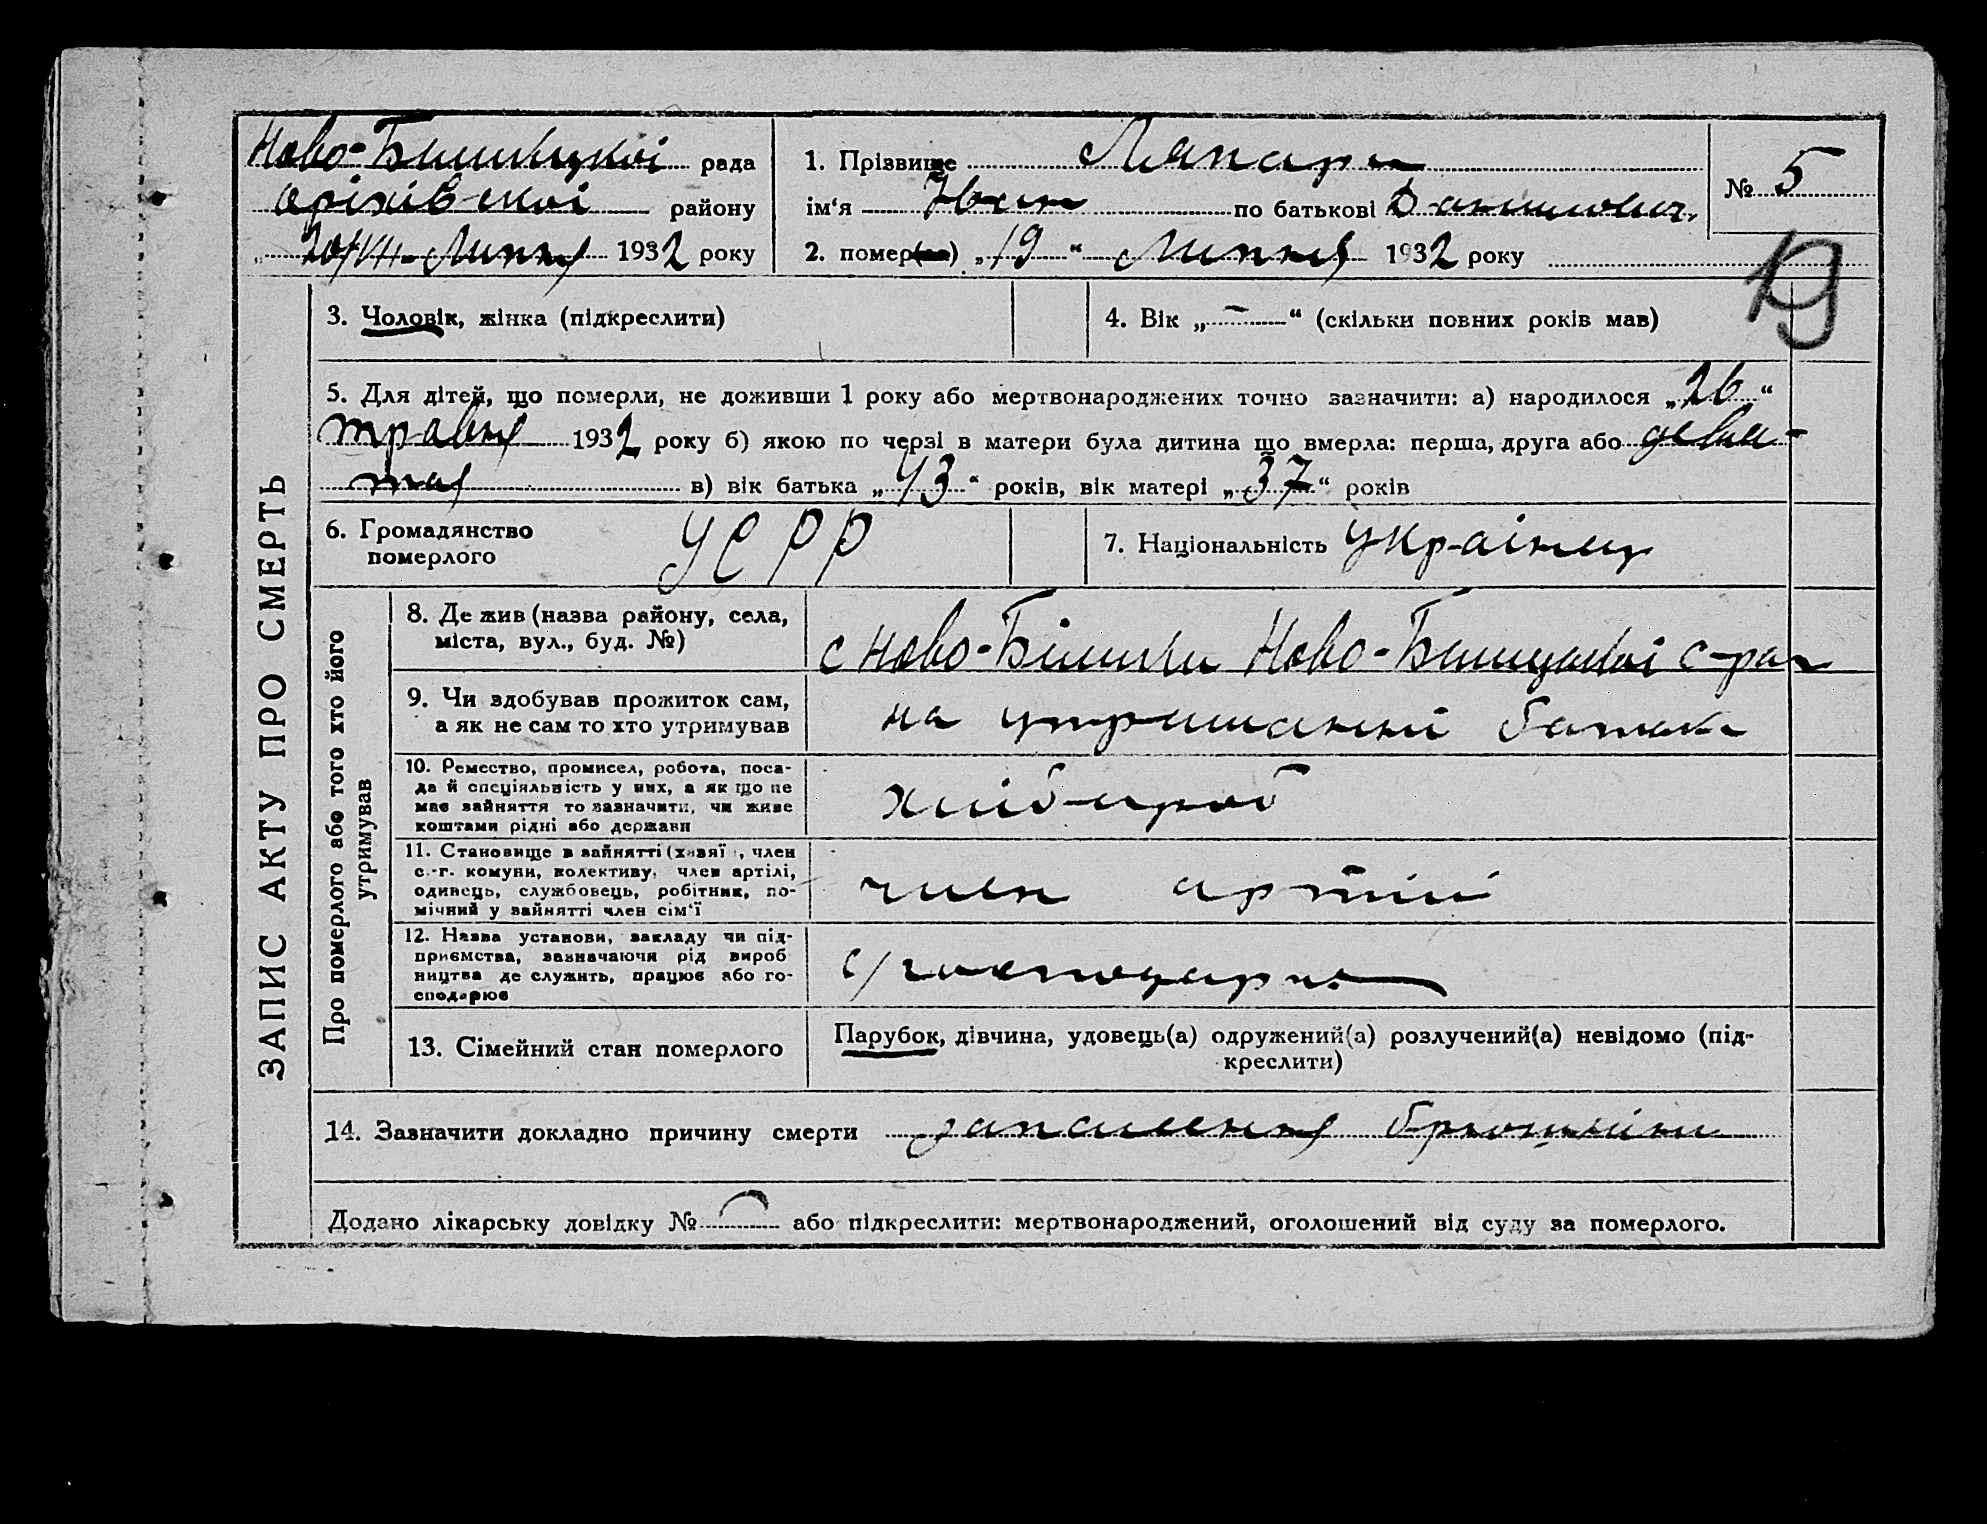 Ново- рада
Оріхівської району
„20/VII Липня 1932 року
1. Прізвище
ім‘я по батькові Данилович
2. помер(ла) „19“ Липня 1932 року
№ 5
19
3. Чоловік, жінка (підкреслити)
4. Вік „ – “ (скільки повних років мав)
5. Для дітей, що померли, не доживши 1 року або мертвонароджених точно зазначити: а) народилося „26“
травня 1932 року б) якою по черзі в матери була дитина що вмерла: перша, друга або девя-
тая в) вік батька „43“ років, вік матері „37“ років
6. Громадянство
померлого
УСРР
7. Національність Українец
ЗАПИС АКТУ ПРО СМЕРТЬ
Про померлого або того хто його
утримував
8. Де жив (назва району, села,
міста, вул., буд. №)
с Ново- Ново- с-ра
9. Чи здобував прожиток сам,
а як не сам то хто утримував
на утриманні батька
10. Ремество, промисел, робота, поса-
да й спеціяльність у них, а як що не
має зайняття то зазначити, чи живе
коштами рідні або держави
хлібороб
11. Становище в зайнятті (хазяї , член
с.-г. комуни, колективу, член артілі,
одинець, службовець, робітник, по-
мічний у зайнятті член сім‘ї
член артілі
12. Назва установи, закладу чи під-
приємства, зазначаючи рід вироб
ництва де служить, працює або го-
сподарює
с/
13. Сімейний стан померлого
Парубок, дівчина, удовець(а) одружений(а) розлучений(а) невідомо (під-
креслити)
14. Зазначити докладно причину смерти запалення брюшліни
Додано лікарську довідку № або підкреслити: мертвонароджений, оголошений від суду за померлого.